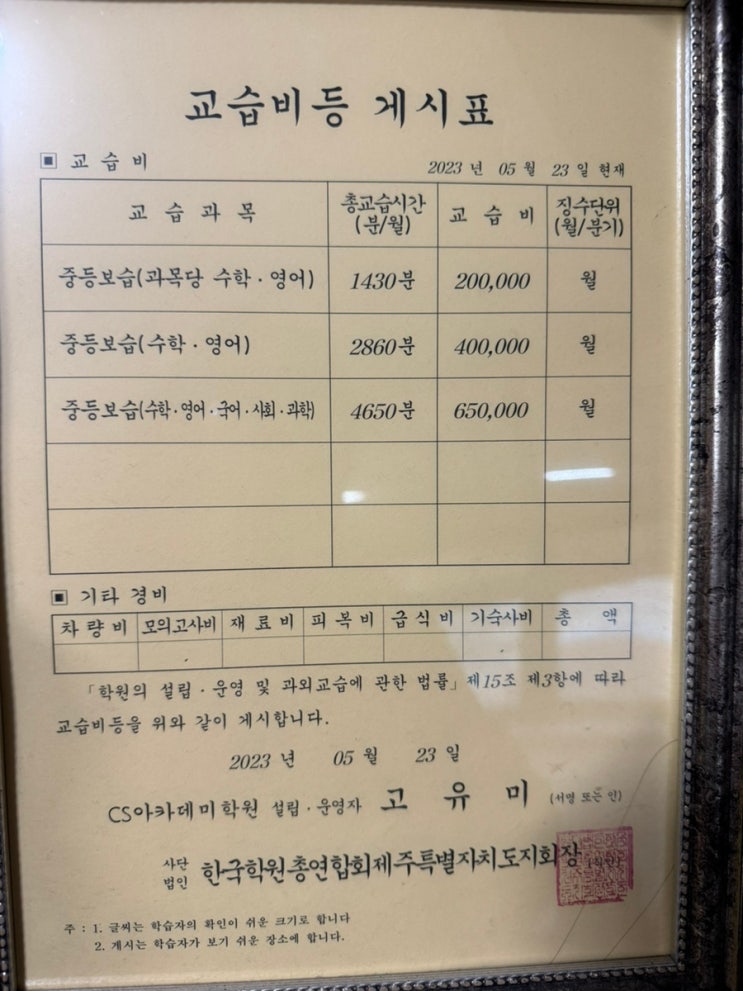 교습비등 게시표
▣ 교 습 비
2023 년 05 월 23 일 현재
교 습 과 목 총교습시간 (분/월) 교 습 비 징수단위 (월/분기)
중등보습(과목당 수학 · 영어) 1430분 200,000 월
중등보습(수학 · 영어) 2860분 400,000 월
중등보습(수학·영어·국어·사회·과학) 4650분 650,000 월
▣ 기타 경비
차 량 비 모의고사비 재 료 비 피 복 비 급 식 비 기숙사비 총 액
「학원의 설립 · 운영 및 과외교습에 관한 법률」제15조 제3항에 따라
교습비등을 위와 같이 게시합니다.
2023 년 05 월 23 일
CS아카데미학원 설립 · 운영자 고 유 미 (서명 또는 인)
사단법인 한국학원총연합회제주특별자치도지회장 (직인)
주 : 1. 글씨는 학습자의 확인이 쉬운 크기로 합니다
2. 게시는 학습자가 보기 쉬운 장소에 합니다.